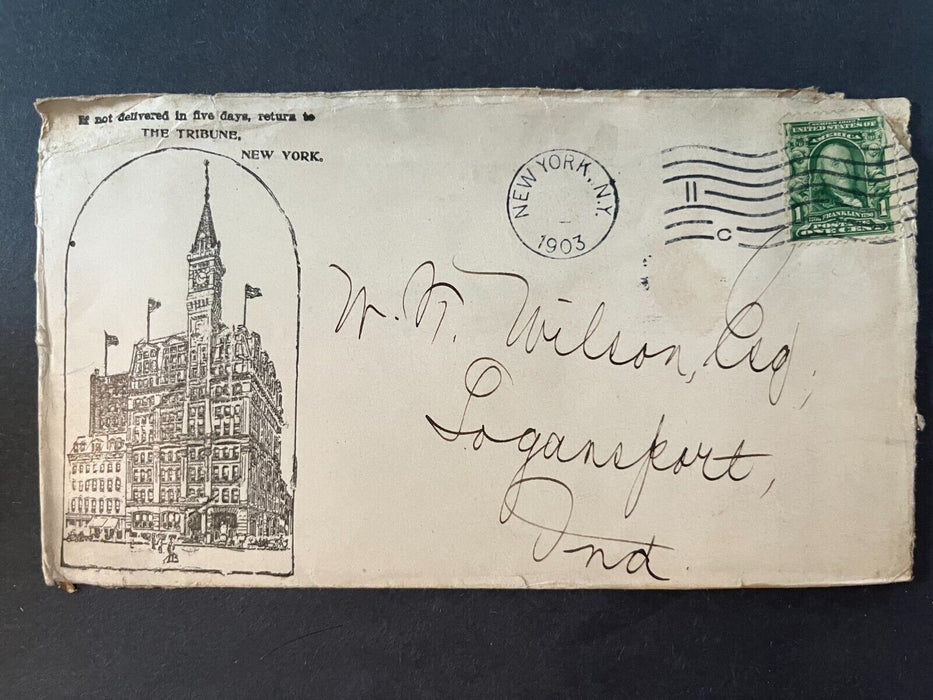 If not delivered in five days, return to
THE TRIBUNE,
NEW YORK.
NEW YORK, N.Y.
1903
II
C
SERIES 1902
UNITED STATES OF
AMERICA
1 FRANKLIN 1790 1
POSTAGE
ONE CENT
W. N. Wilson, Esq,
Logansport,
Ind.